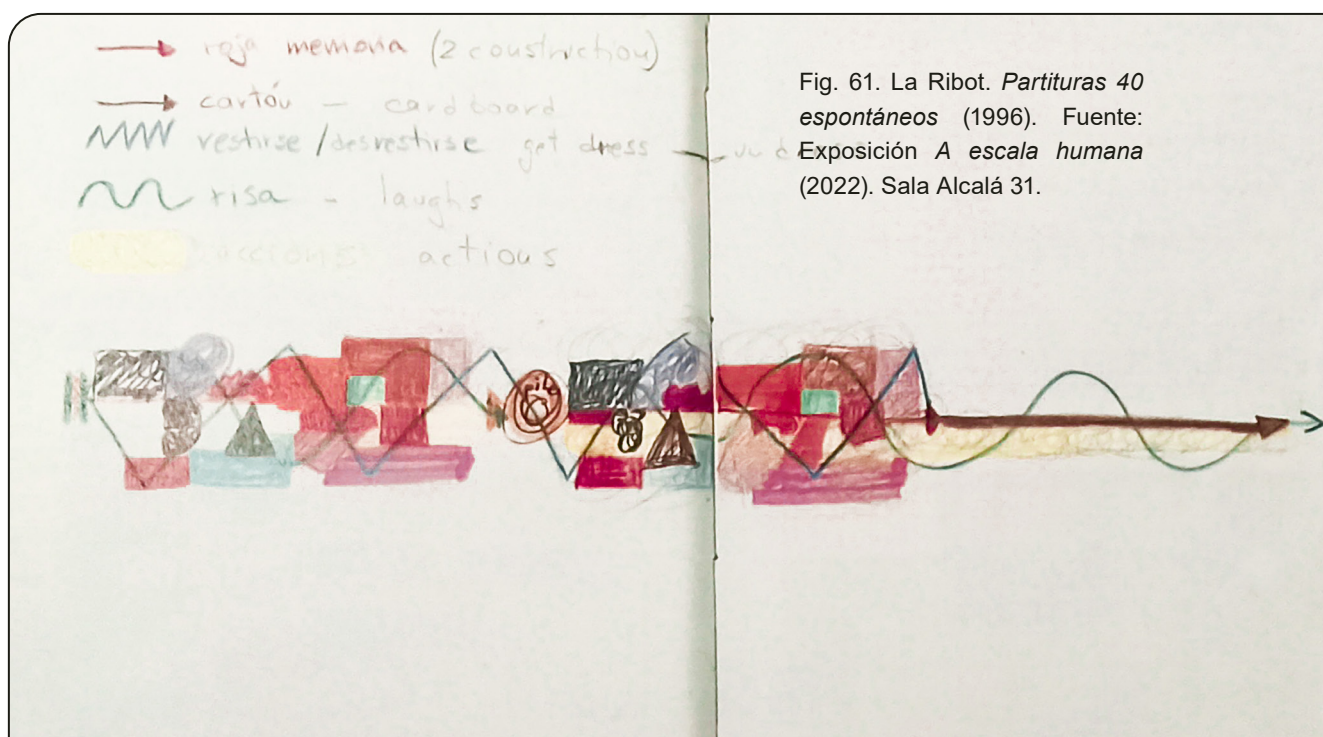 roja memoria (2 construction)
cartón – cardboard
vestirse/desvestirse get dress – un dress
risa – laughs
acciones actions
Fig. 61. La Ribot. Partituras 40
espontáneos (1996). Fuente:
Exposición A escala humana
(2022). Sala Alcalá 31.